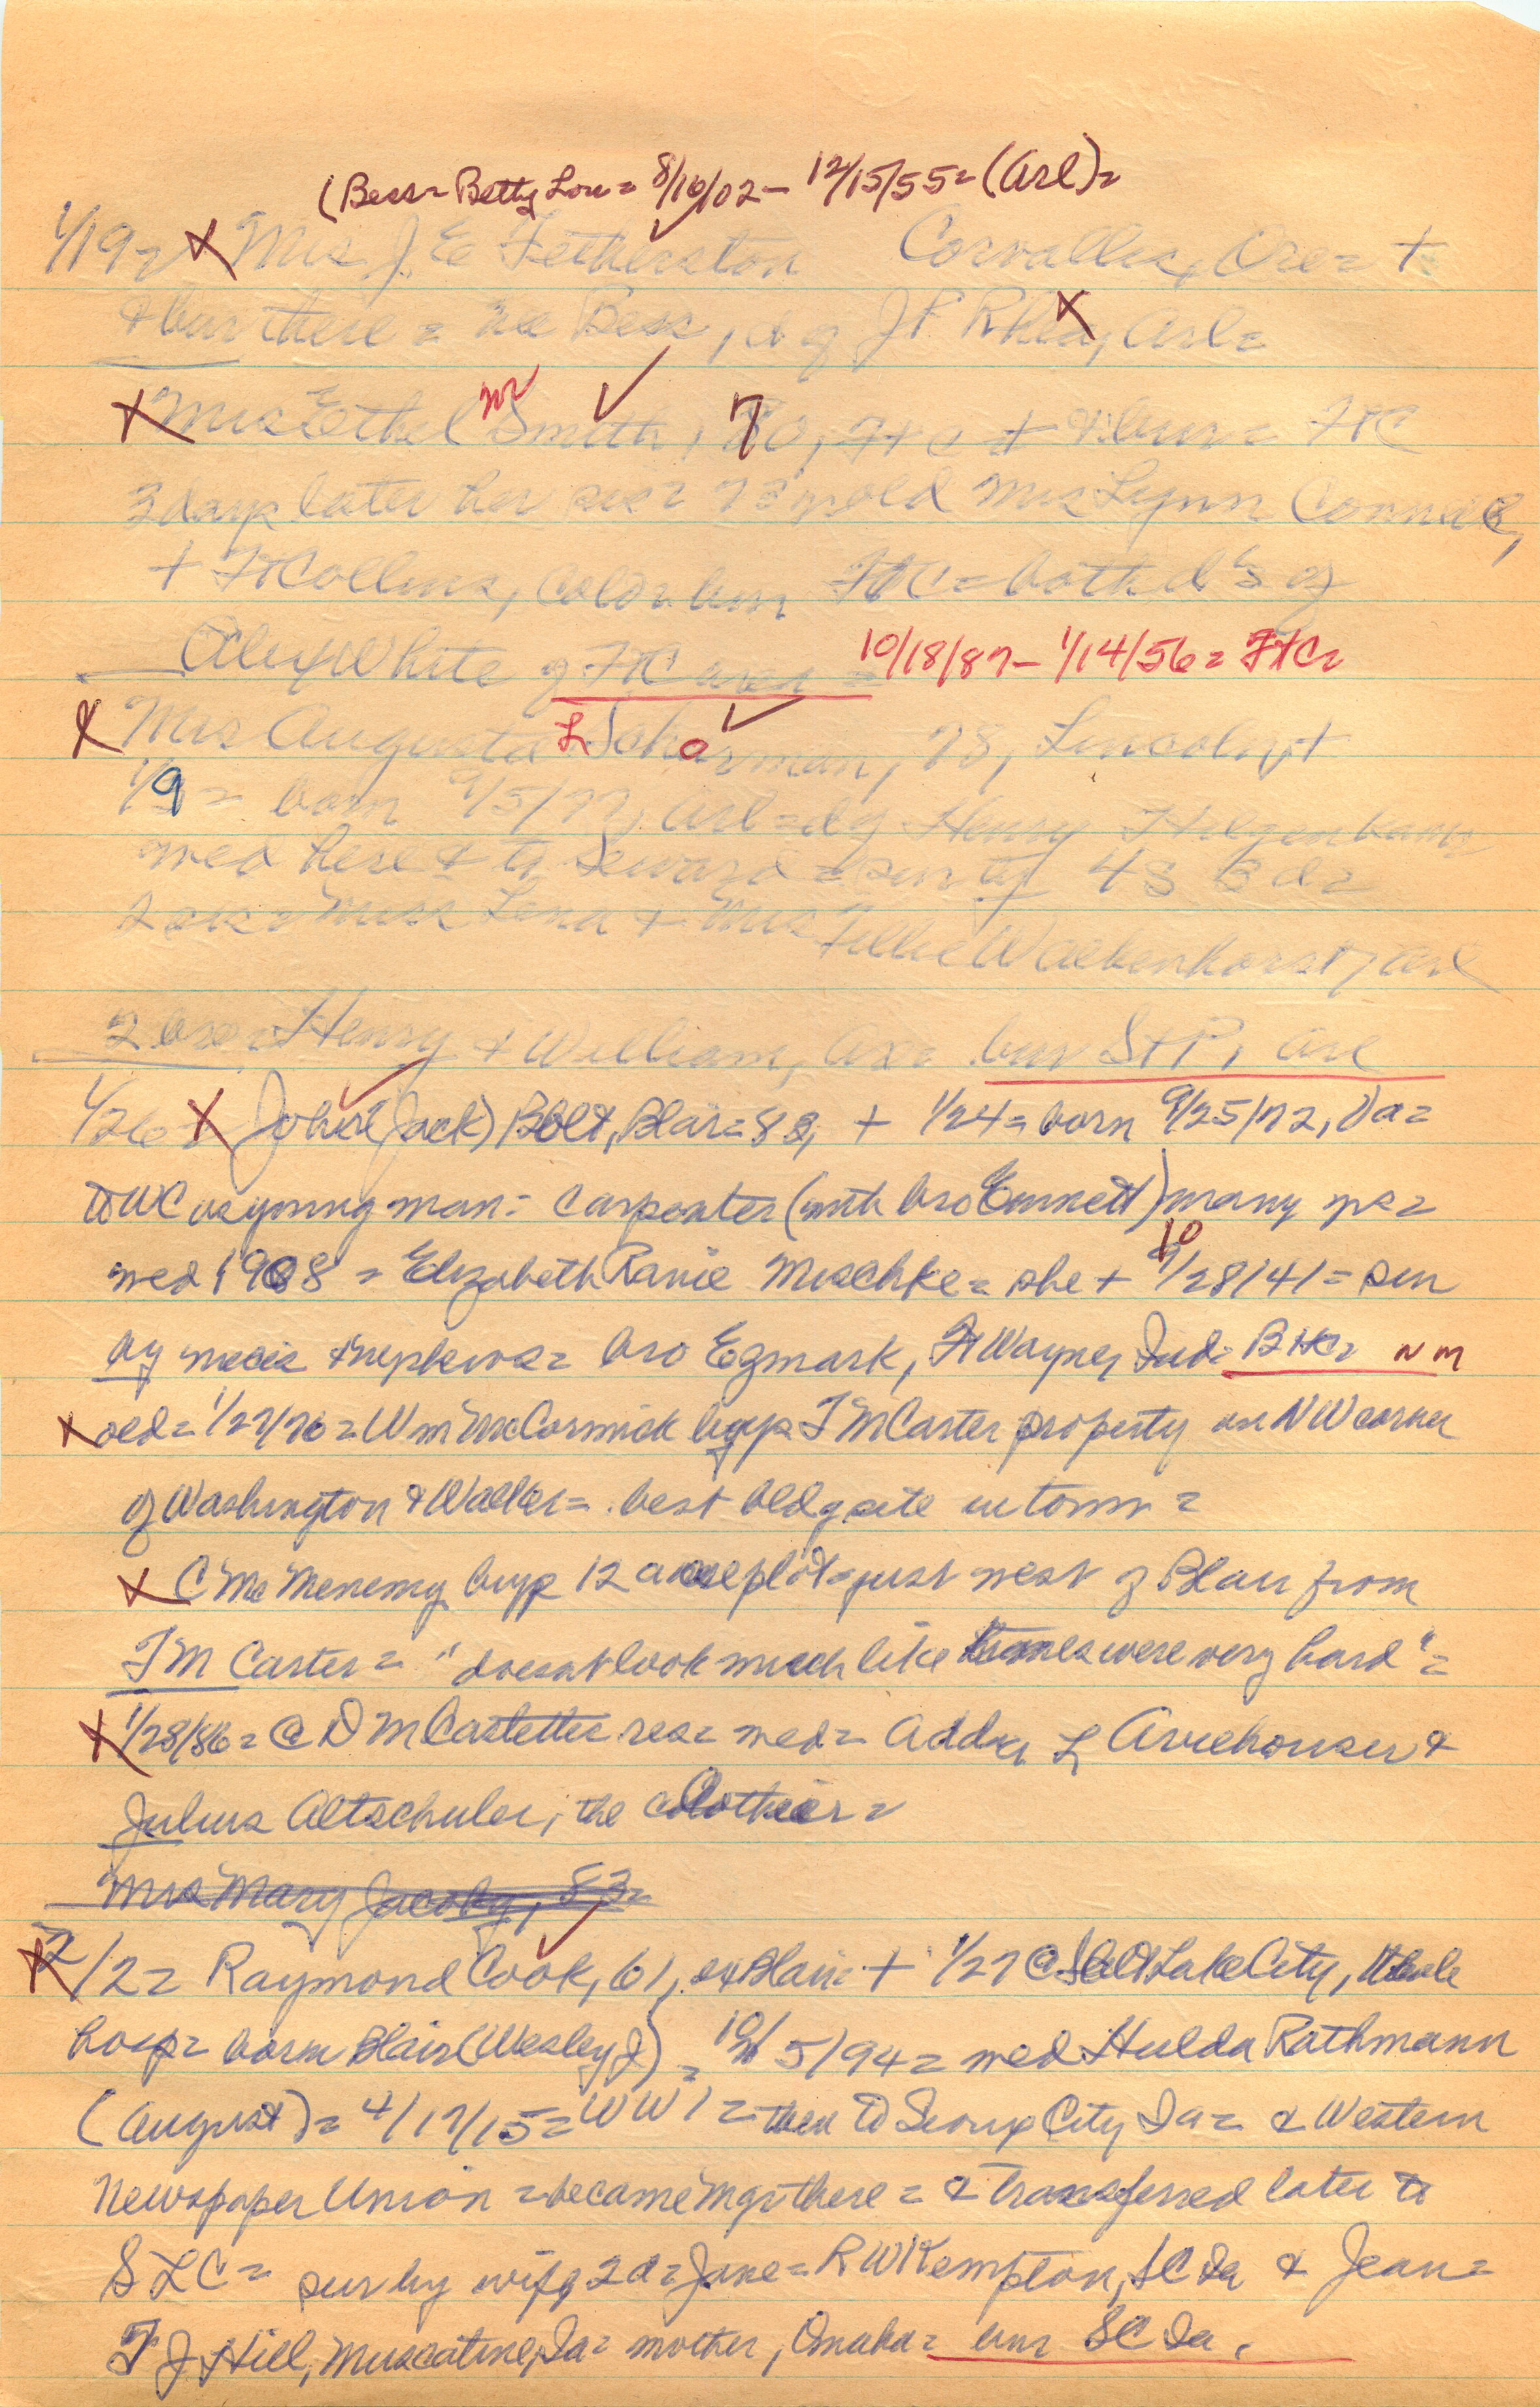 (Bess = Betty Lou = 8/16/02 - 12/15/55 = (Arl) =
1/19 = X Mrs J. E. Fetherston Corvallis, Ore = +
& bur there = nee Bess, d of J P Rhea, Arl =
X Mrs Ethel M Smith, 70, FtC + & bur = FtC
3 days later her sis = 73 Mrs Lynn
+ Ft Collins, Colo & bur FtC = both d's of
Alex White of FtC area = 10/18/87 - 1/14/56 = FtC =
X Mrs Augusta L Schorman, 78, Lincoln, +
1/9 = born 9/5/77, Arl = d of Henry Hilgenkamp
med here & to Seward = sur by 4 S 3 d =
2 sis = Miss Lena & Mrs Tillie Wackenhorst, Arl
2 bro = Henry & William, Arl = bur St P, Arl
1/26 = X John (Jack) Bolt, Blair = 83, + 1/24 = born 9/25/72, Va =
to WC as young man = carpenter (with bro Emmett) many yrs =
med 1908 = Elizabeth Ranie Mischke = she + 10/28/41 = sur
by nieces & nephews = bro Egmark, Ft Wayne, Ind = BHC = N M
X old = 1/27/76 = Wm McCormick buys T M Carter property on NW corner
of Washington & Walker = best bldg site in town =
X C McMenemy buys 12 acre plot just west of Blair from
T M Carter = "doesn't look much like times were very hard" =
X 1/28/86 = @ D M Castetter res = med = Adda L Aviehouser &
Julius Altschuler, the clothier =
Mrs Mary Jacoby, 83 =
X 2/2 = Raymond Cook, 61, ex Blair + 1/27 @ Salt Lake City, Utah
hosp = born Blair (Wesley J) = 10/5/94 = med Hulda Rathmann
(August) = 4/17/15 = WW1 = then to Sioux City Ia = & Western
Newspaper Union = became mgr there = & transferred later to
SLC = sur by wife, 2 d = Jane = R W Kempton, SC Ia & Jean =
T J Hill, Muscatine, Ia = mother, Omaha = bur SC Ia.